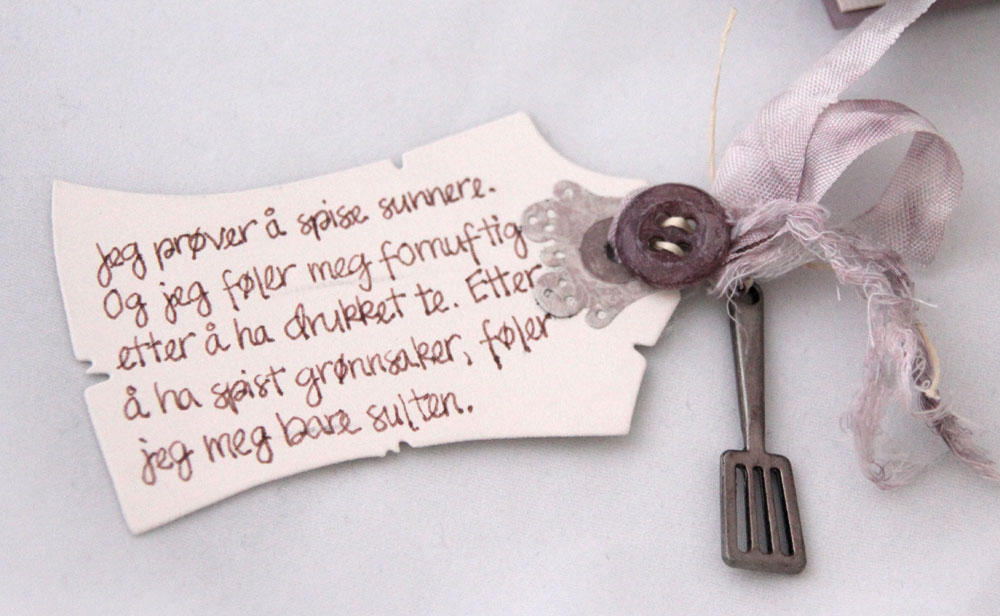 Jeg prøver å spise sunnere.
Og jeg føler meg fornuftig
etter å ha drukket te. Etter
å ha spist grønnsaker, føler
jeg meg bare sulten.